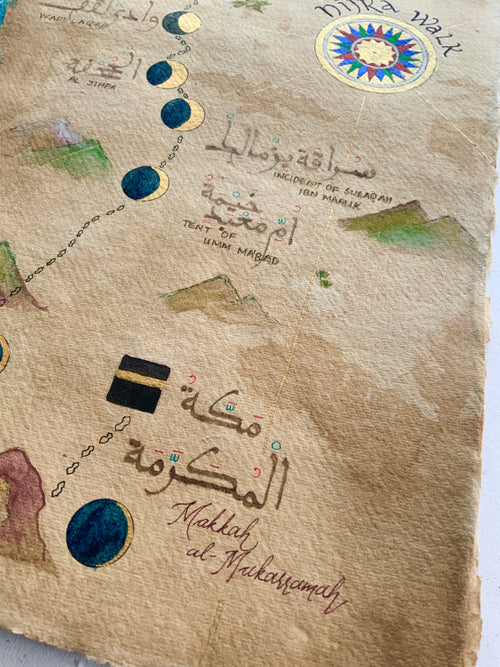 HIJRA WALK
WADI LAQAF
الجحفة
AL JIHFA
سراقة بن مالك
INCIDENT OF SURAQAH
IBN MAALIK
خَيْمَةُ
أُمّ مَعْبَد
TENT OF
UMM MA'BAD
مَكَّةُ
الْمُكَرَّمَة
Makkah
al-Mukarramah